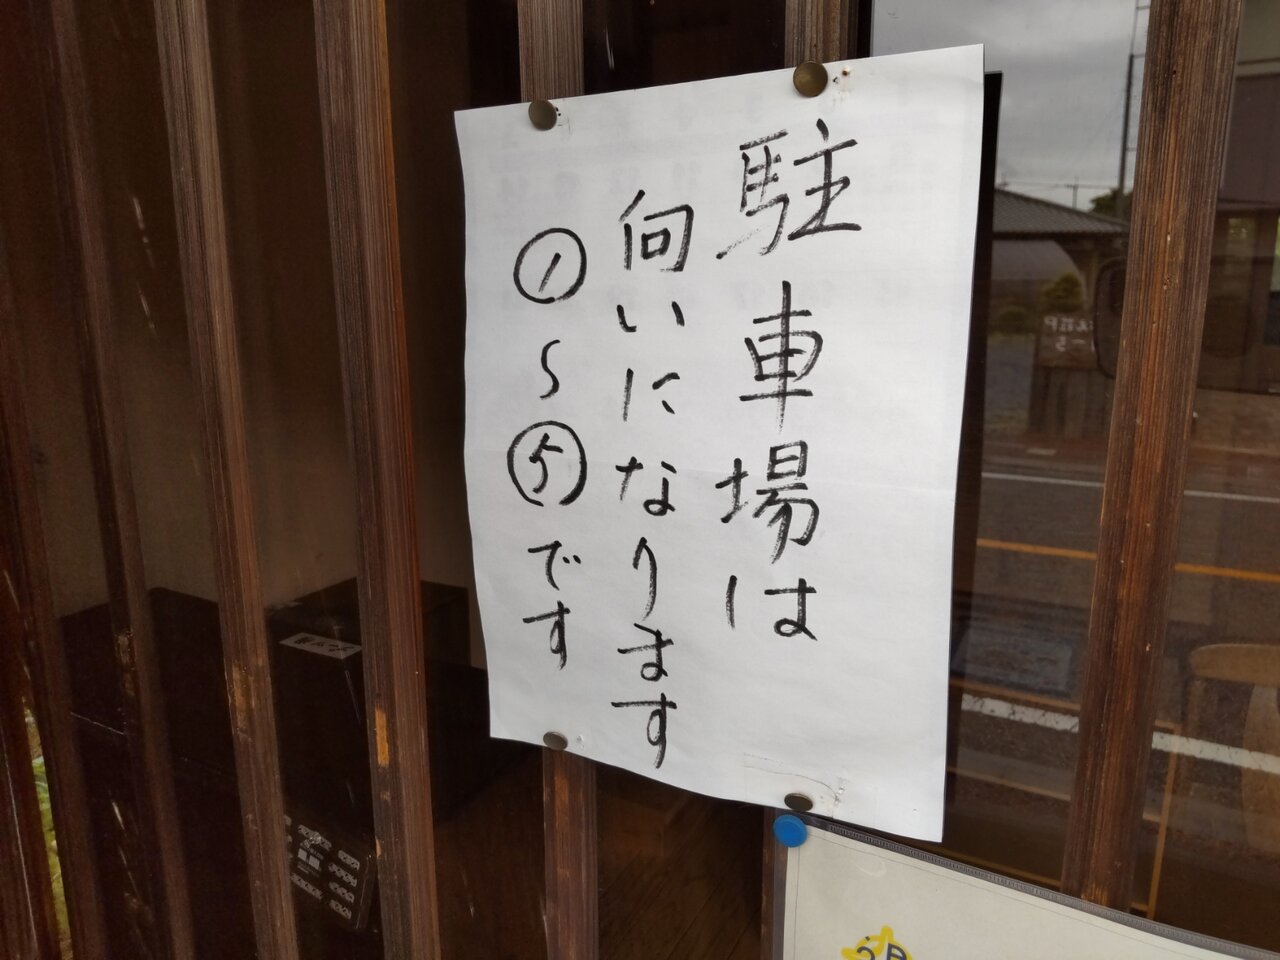 駐車場は
向いになります
①〜⑤です